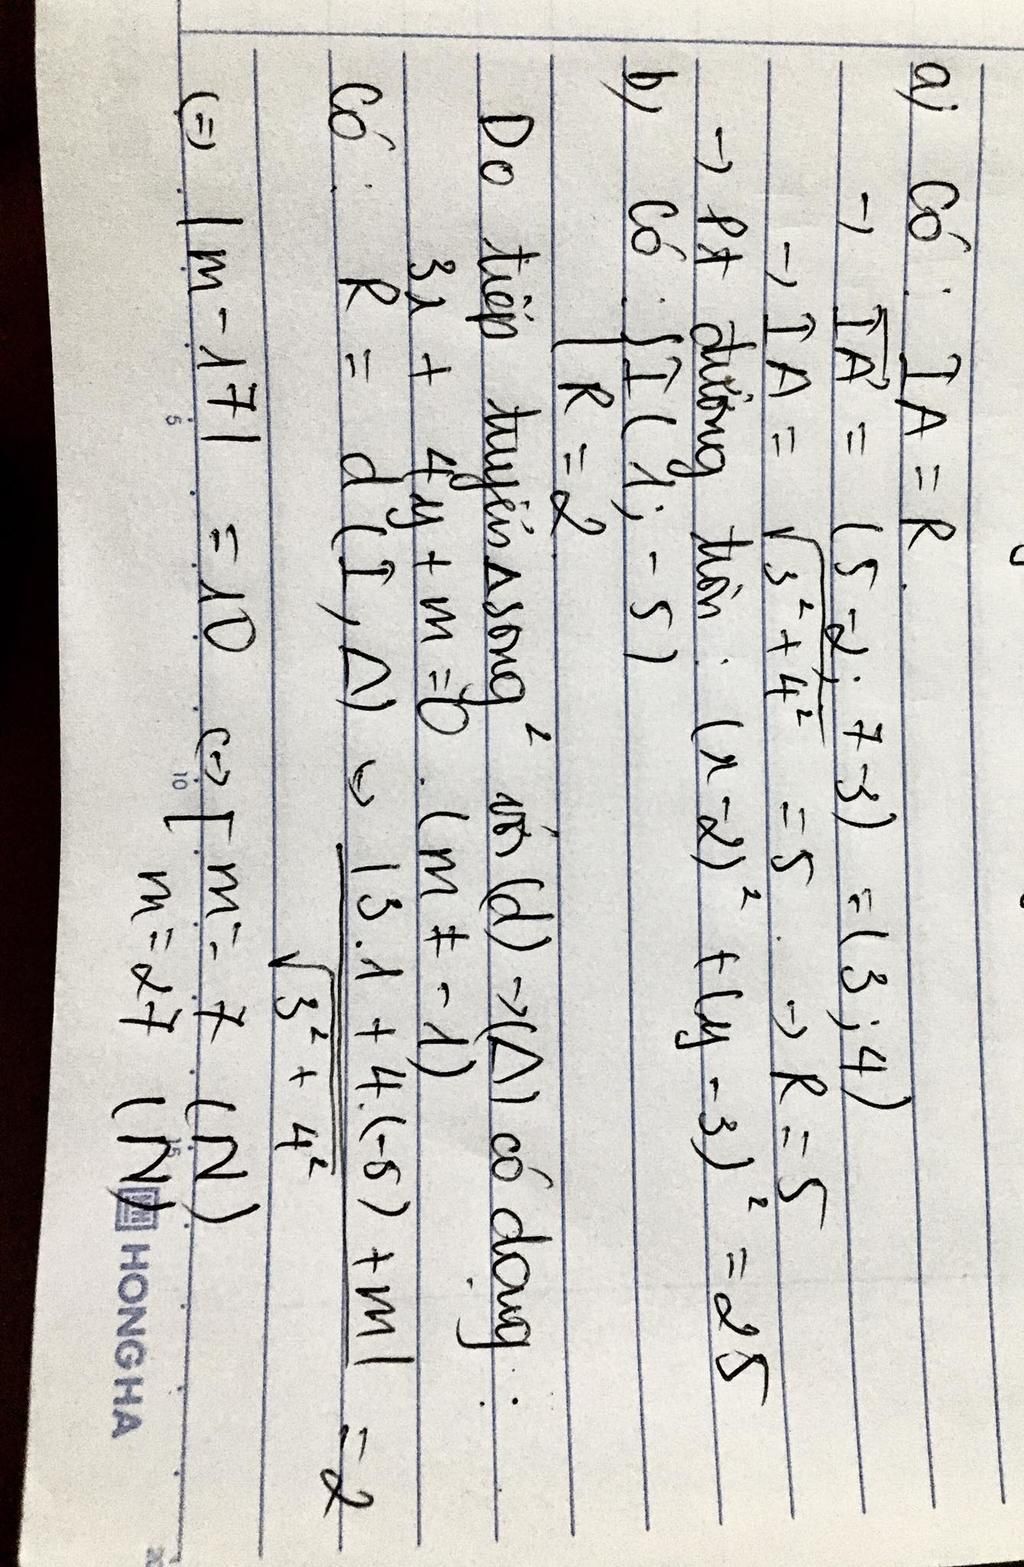 a) Có: IA = R.
→ IA = (5-2; 7-3) = (3; 4)
→ IA = √3² + 4² = 5. → R = 5
→ Pt đường tròn: (x-2)² + (y-3)² = 25
b) Có: { I(1; -5)
R = 2.
Do tiếp tuyến Δ song² với (d) → (Δ) có dạng:
3x + 4y + m = 0. (m ≠ -1)
Có: R = d(I, Δ) ↔ |3.1 + 4.(-5) + m| / √3² + 4² = 2
(=) |m - 17| = 10 (=) [ m = 7 (N)
m = 27 (N)
HONG HA
5
10
15
20